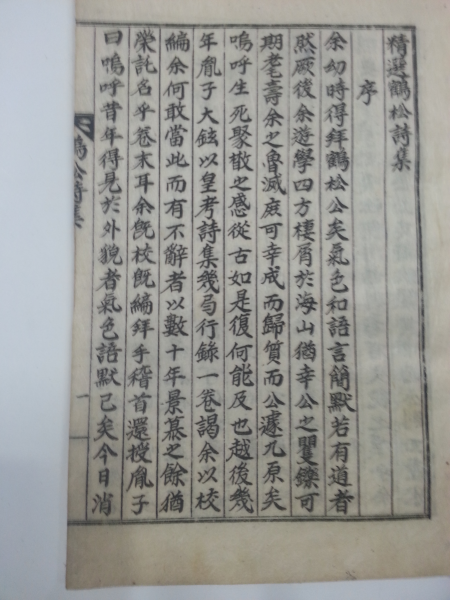 精選鶴松詩集
序
余幼時得拜鶴松公矣氣色和語言簡默若有道者
然厥後余遊學四方棲屑於海山猶幸公之矍鑠可
期耄壽余之魯滅庶可幸成而歸質而公遽九原矣
嗚呼生死聚散之感從古如是復何能及也越後幾
年胤子大鉉以皇考詩集幾局行錄一卷謁余以校
編余何敢當此而有不辭者以數十年景慕之餘猶
榮託名乎卷末耳余旣校旣編拜手稽首還授胤子
曰嗚呼昔年得見於外貌者氣色語默已矣今日消
鶴松詩集
一